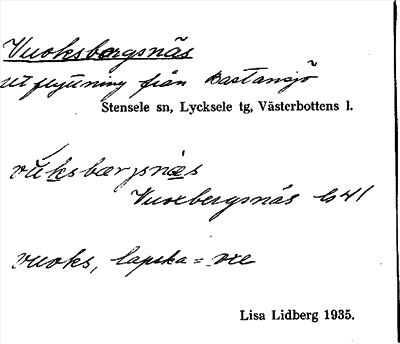 Vuoksbergsnäs
utflyttning från Bastansjö
Stensele sn, Lycksele tg, Västerbottens l.
vuksbærjsnæs
Vuoxbergsnäs GS 41
vuoks, lapska = oxe
Lisa Lidberg 1935.